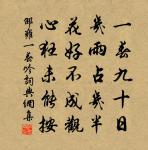 一春九十日
幾雨占幾半
花好不成觀
心狂未能按
邵雍一春吟詞典網集